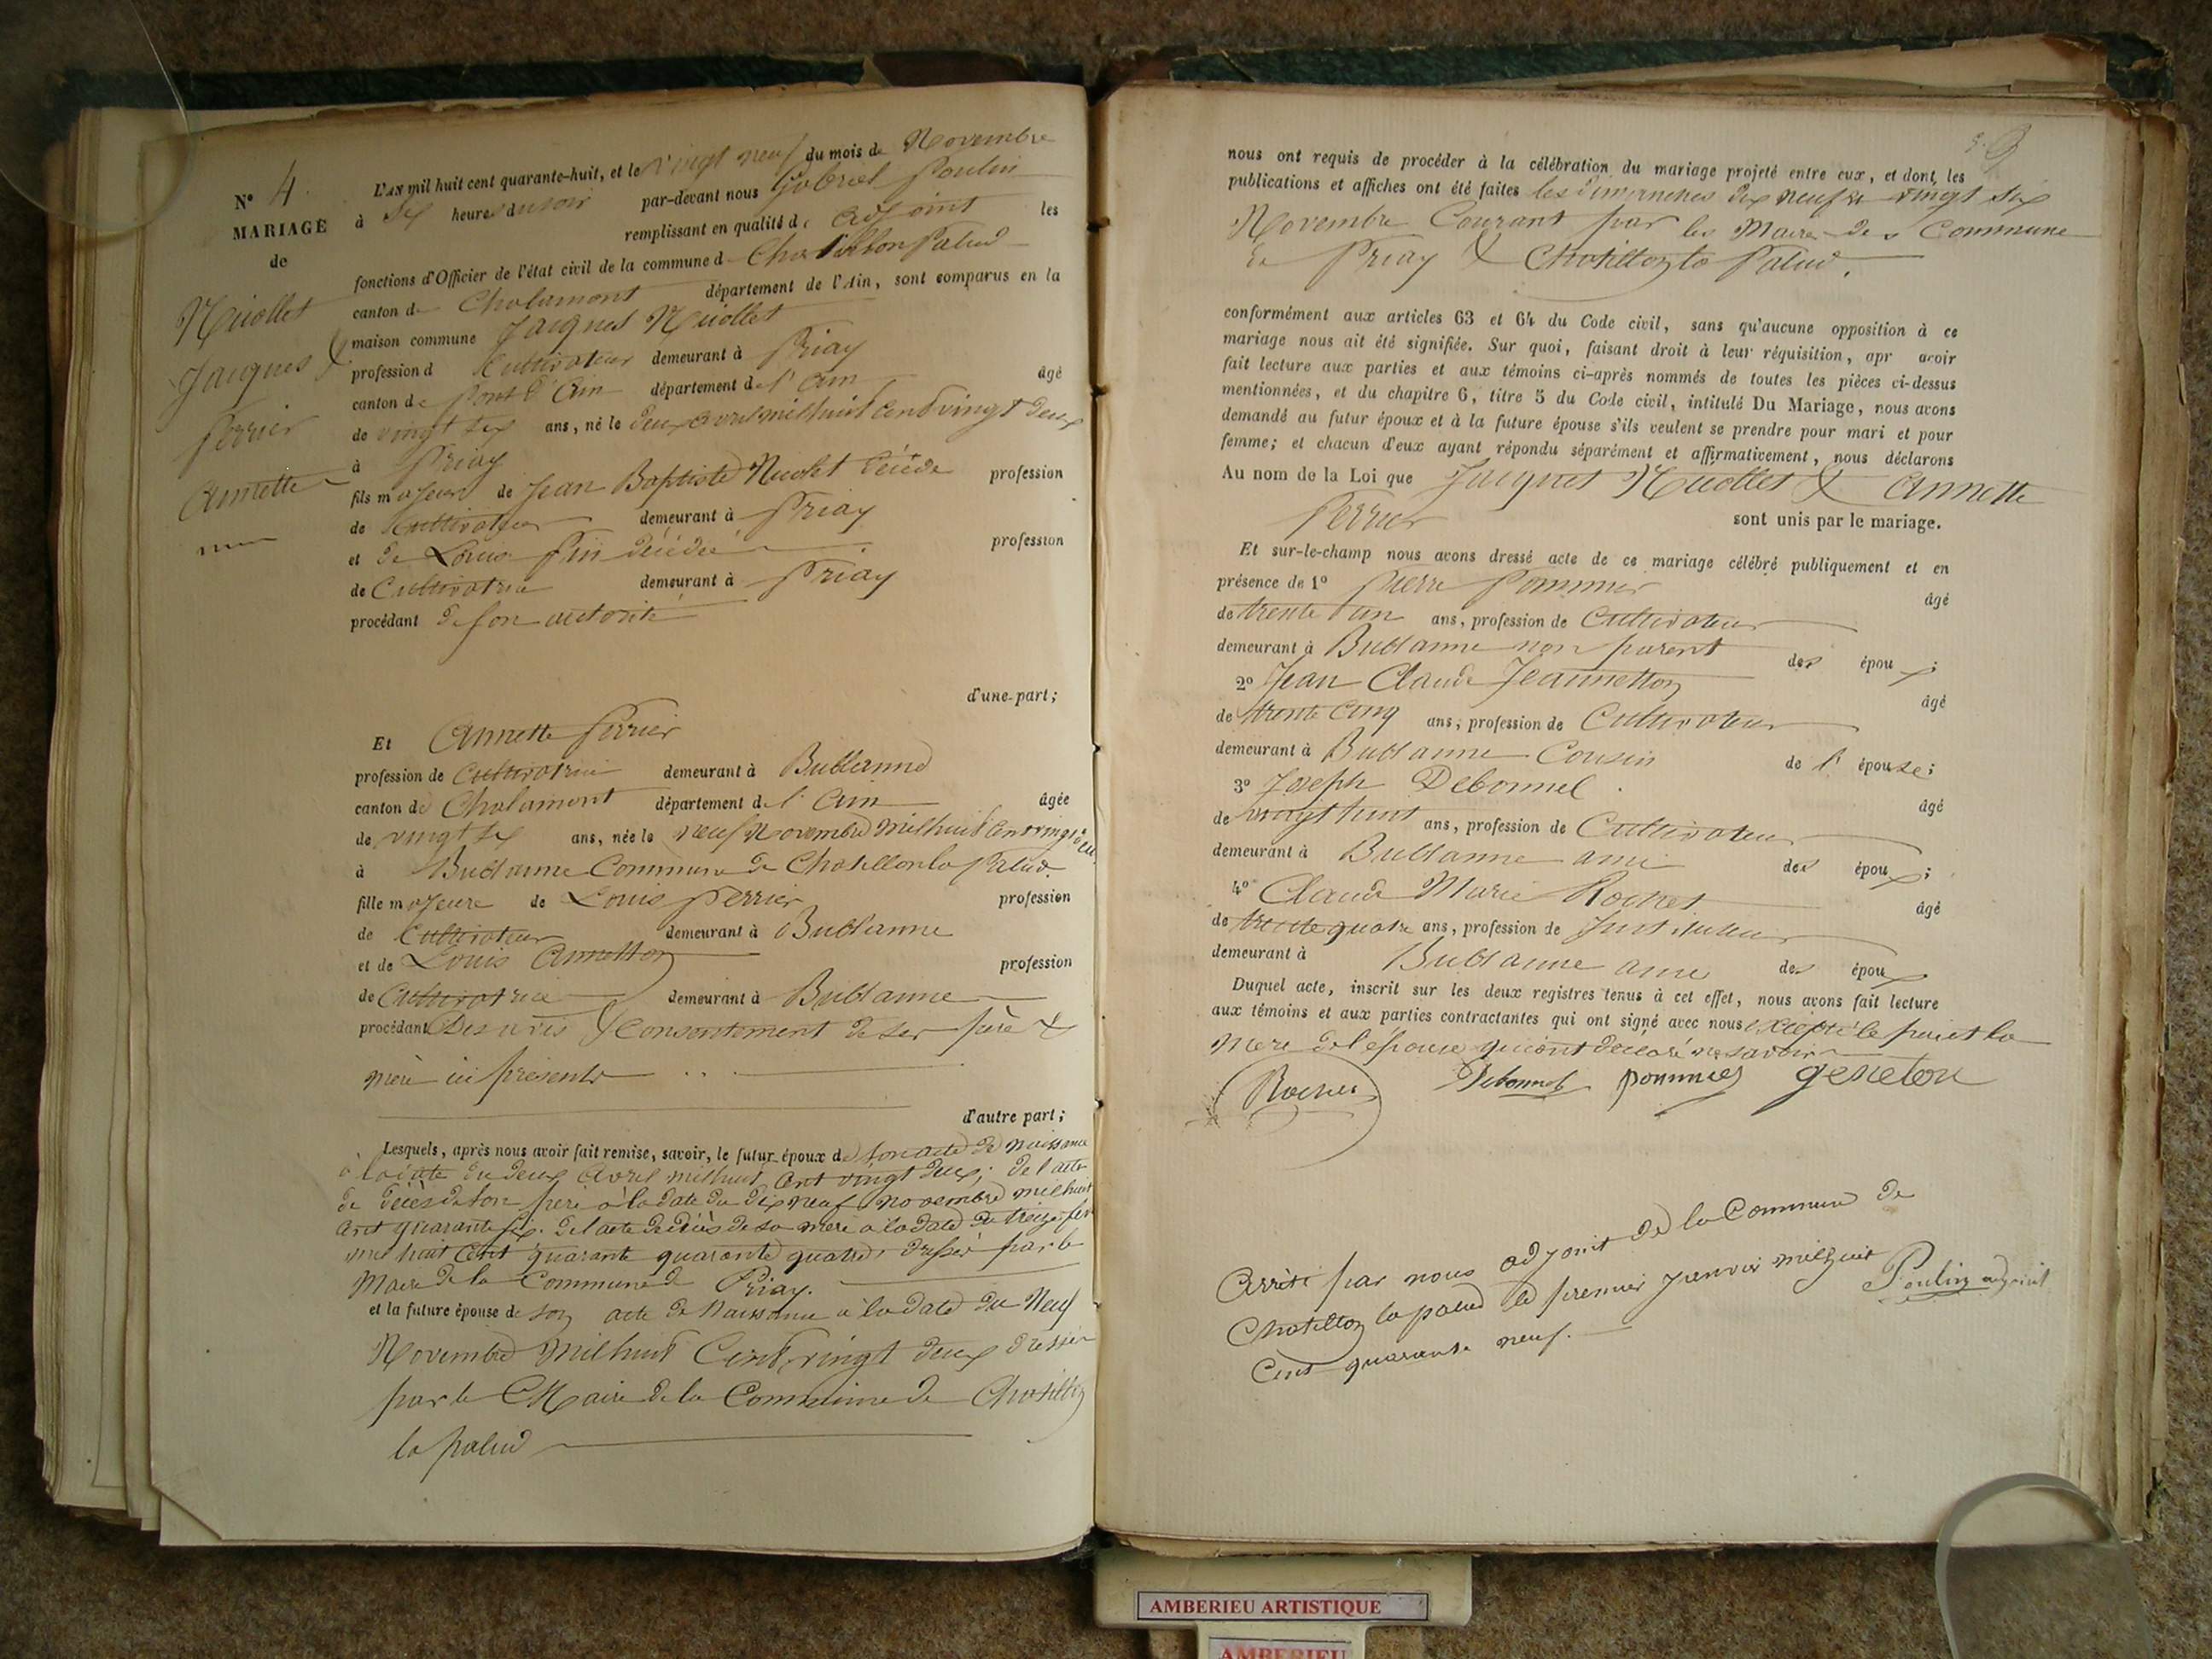 N° 4
MARIAGE
de
Nuollet
Jacques &
Perrier
Annette
L'AN mil huit cent quarante-huit, et le vingt neuf du mois de Novembre
à six heures du soir par-devant nous Gabriel Poulin
remplissant en qualité d' adjoint les
fonctions d'Officier de l'état civil de la commune d Chatillon Palud
canton de Chalamont département de l'Ain, sont comparus en la
maison commune Jacques Nuollet
profession d Cultivateur demeurant à Priay
canton de Pont d'Ain département de l'ain âgé
de vingt six ans, né le deux avril mil huit cent vingt deux
à Priay
fils majeur de Jean Baptiste décédé profession
de Cultivateur demeurant à Priay
et de Louise Pin décédée profession
de Cultivatrice demeurant à Priay
procédant de son autorité
d'une part;
Et Annette Perrier
profession de Cultivatrice demeurant à Bublanne
canton de Chalamont département de l'ain âgée
de vingt six ans, née le neuf Novembre mil huit cent vingt deux
à Bublanne Commune de Chatillon la Palud
fille majeure de Louis Perrier profession
de Cultivateur demeurant à Bublanne
et de Louis Annetton profession
de Cultivatrice demeurant à Bublanne
procédant Des avis & consentiment de ses père &
mère ici présents
d'autre part;
Lesquels, après nous avoir fait remise, savoir, le futur époux de son acte de naissance
à la date du deux avril mil huit cent vingt deux; de l'acte
de décès de son père à la date du dix neuf novembre mil huit
cent quarante six. de l'acte de décès de sa mère à la date du treize
mil huit cent quarante quarante quatre, dressé par le
Maire de la Commune de Priay.
et la future épouse de son acte de Naissance à la date du Neuf
Novembre mil huit Cent vingt deux dressée
par le Maire de la Commune de Chatillon
la palud
nous ont requis de procéder à la célébration du mariage projeté entre eux, et dont les
publications et affiches ont été faites les dimanches dix neuf & vingt six
Novembre Courant par les Maires des Commune
de Priay & Chatillon la Palud.
conformément aux articles 63 et 64 du Code civil, sans qu'aucune opposition à ce
mariage nous ait été signifiée. Sur quoi, faisant droit à leur réquisition, apr avoir
fait lecture aux parties et aux témoins ci-après nommés de toutes les pièces ci-dessus
mentionnées, et du chapitre 6, titre 5 du Code civil, intitulé Du Mariage, nous avons
demandé au futur époux et à la future épouse s'ils veulent se prendre pour mari et pour
femme; et chacun d'eux ayant répondu séparément et affirmativement, nous déclarons
Au nom de la Loi que Jacques Nuollet & Annette
Perrier sont unis par le mariage.
Et sur-le-champ nous avons dressé acte de ce mariage célébré publiquement et en
présence de 1° Pierre Pommier âgé
de trente un ans, profession de Cultivateur
demeurant à Bublanne non parent des époux;
2° Jean Claude Jeannetton âgé
de trente cinq ans, profession de Cultivateur
demeurant à Bublanne Cousin de l' épouse;
3° Joseph Debonnel
de vingt huit ans, profession de Cultivateur âgé
demeurant à Bublanne ami des époux;
4° Claude Marie Rochet âgé
de trente quatre ans, profession de Instituteur
demeurant à Bublanne ami des époux
Duquel acte, inscrit sur les deux registres tenus à cet effet, nous avons fait lecture
aux témoins et aux parties contractantes qui ont signé avec nous excepté le père et la
mère de l'épouse qui ont déclaré ne savoir
Rochet Debonnel pommier geneton
Arrêté par nous adjoint de la Commune de
Chatillon la palud le premier janvier mil huit
Cent quarante neuf. Poulin adjoint
AMBERIEU ARTISTIQUE
AMBERIEU